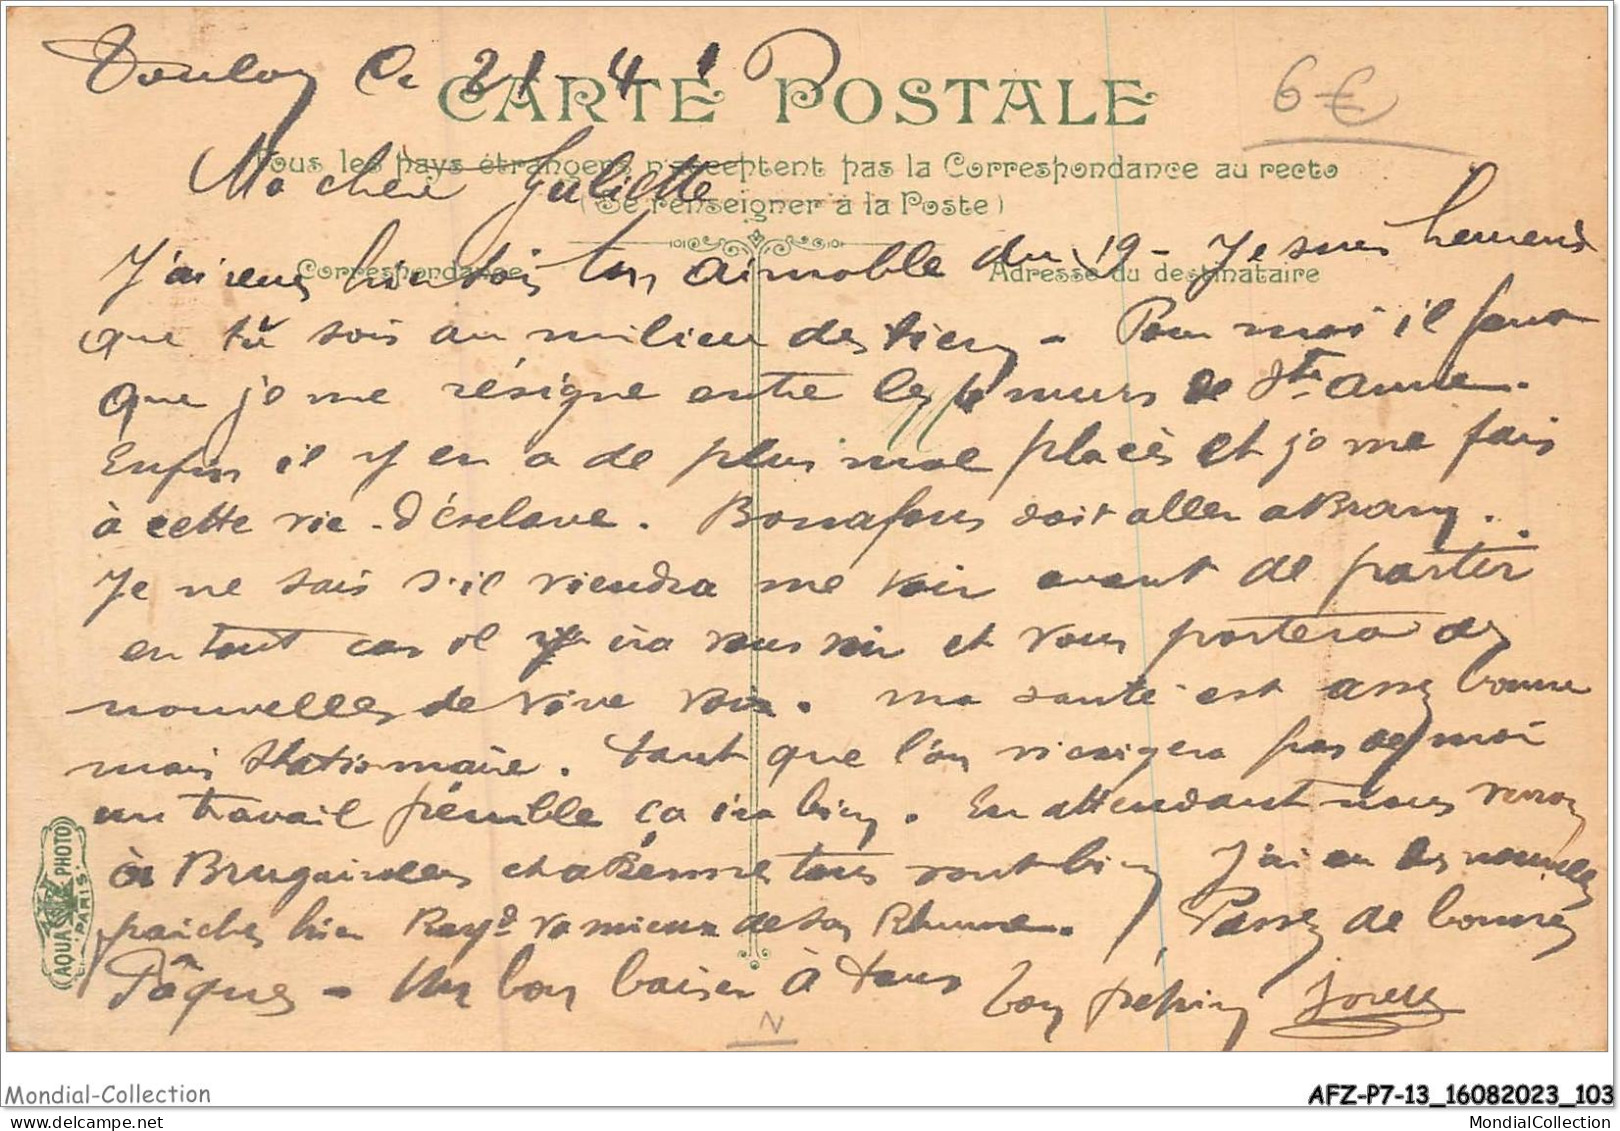 Toulon le 21 - 4
CARTE POSTALE
6 €
Tous les pays étrangers n'acceptent pas la Correspondance au recto
Ma chere Juliette
(Se renseigner à la Poste)
J'ai reçu ton aimable du 19 - Je suis heureux
Correspondance
Adresse du destinataire
que tu sois au milieu des tiens - Pour moi il faut
que je me résigne entre les 4 murs de Ste anne.
Enfin il y en a de plus mal placés et je me fais
à cette vie d'ésclave. Bonafous doit aller a Bram.
Je ne sais s'il viendra me voir avant de partir
en tout cas il ira vous voir et vous portera des
nouvelles de vive voix. ma santé est assez bonne
mais stationnaire. tant que l'on n'exigera pas de moi
un travail pénible ça ira bien. En attendant nous
à et a tous vont bien J'ai eu des nouvelles
fraiches hier Rayd va mieux de son Rhume. Passez de bonnes
Pâques - Un bon baiser à tous Ton
N
AQUA PHOTO
PARIS
Mondial-Collection
AFZ-P7-13_16082023_103
MondialCollection
MondialCollection.com